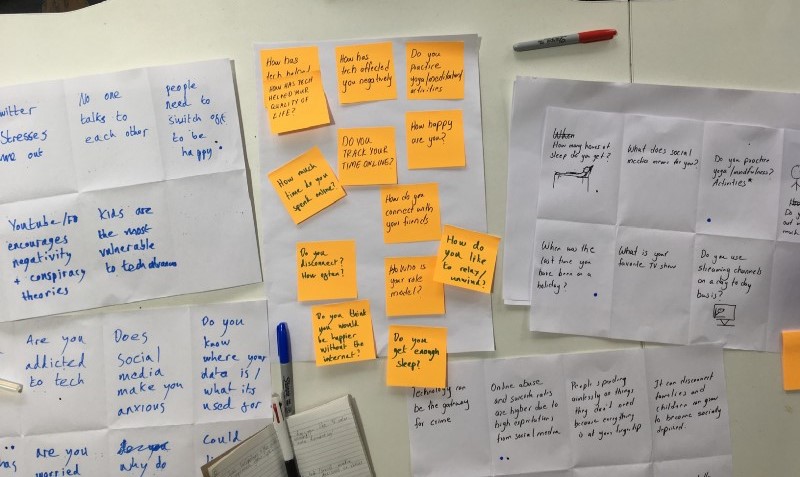 witter
stresses
me out
No one
talks to
each other
people
need to
switch off
to be
happy
encourages
negativity
+ conspiracy
theories
Kids are
the most
vulnerable
to tech
Are you
addicted
to tech
Does
social
media
make you
anxious
Do you
know
where your
data is /
what its
used for
are you
worried
why do
Could
How has
tech helped
HOW HAS TECH
HELPED YOUR
QUALITY OF
LIFE?
How has
tech affected
you negatively
Do you
practice
yoga/meditation/
activities
DO YOU
TRACK YOUR
TIME ONLINE?
How happy
are you?
How much
time do you
spend online?
How do you
connect with
your friends
Do you
disconnect?
How often?
Who is
your role
model?
How do
you like
to relax/
unwind?
Do you think
you would
be happier
without the
internet?
Do you
get enough
sleep?
When
How many hours of
sleep do you get?
What does social
media mean for you?
Do you practice
yoga/mindfulness?
Activities
When was the
last time you
have been on a
holiday?
What is your
favorite TV show
Do you use
streaming channels
on a day to day
basis?
Technology can
be the gateway
for crime
Online abuse
and suicide rates
are higher due to
high expectations
from social media.
People spending
aimlessly on things
they don't need
because everything
is at your fingertip
It can disconnect
families and
children can grow
to become socially
deprived.